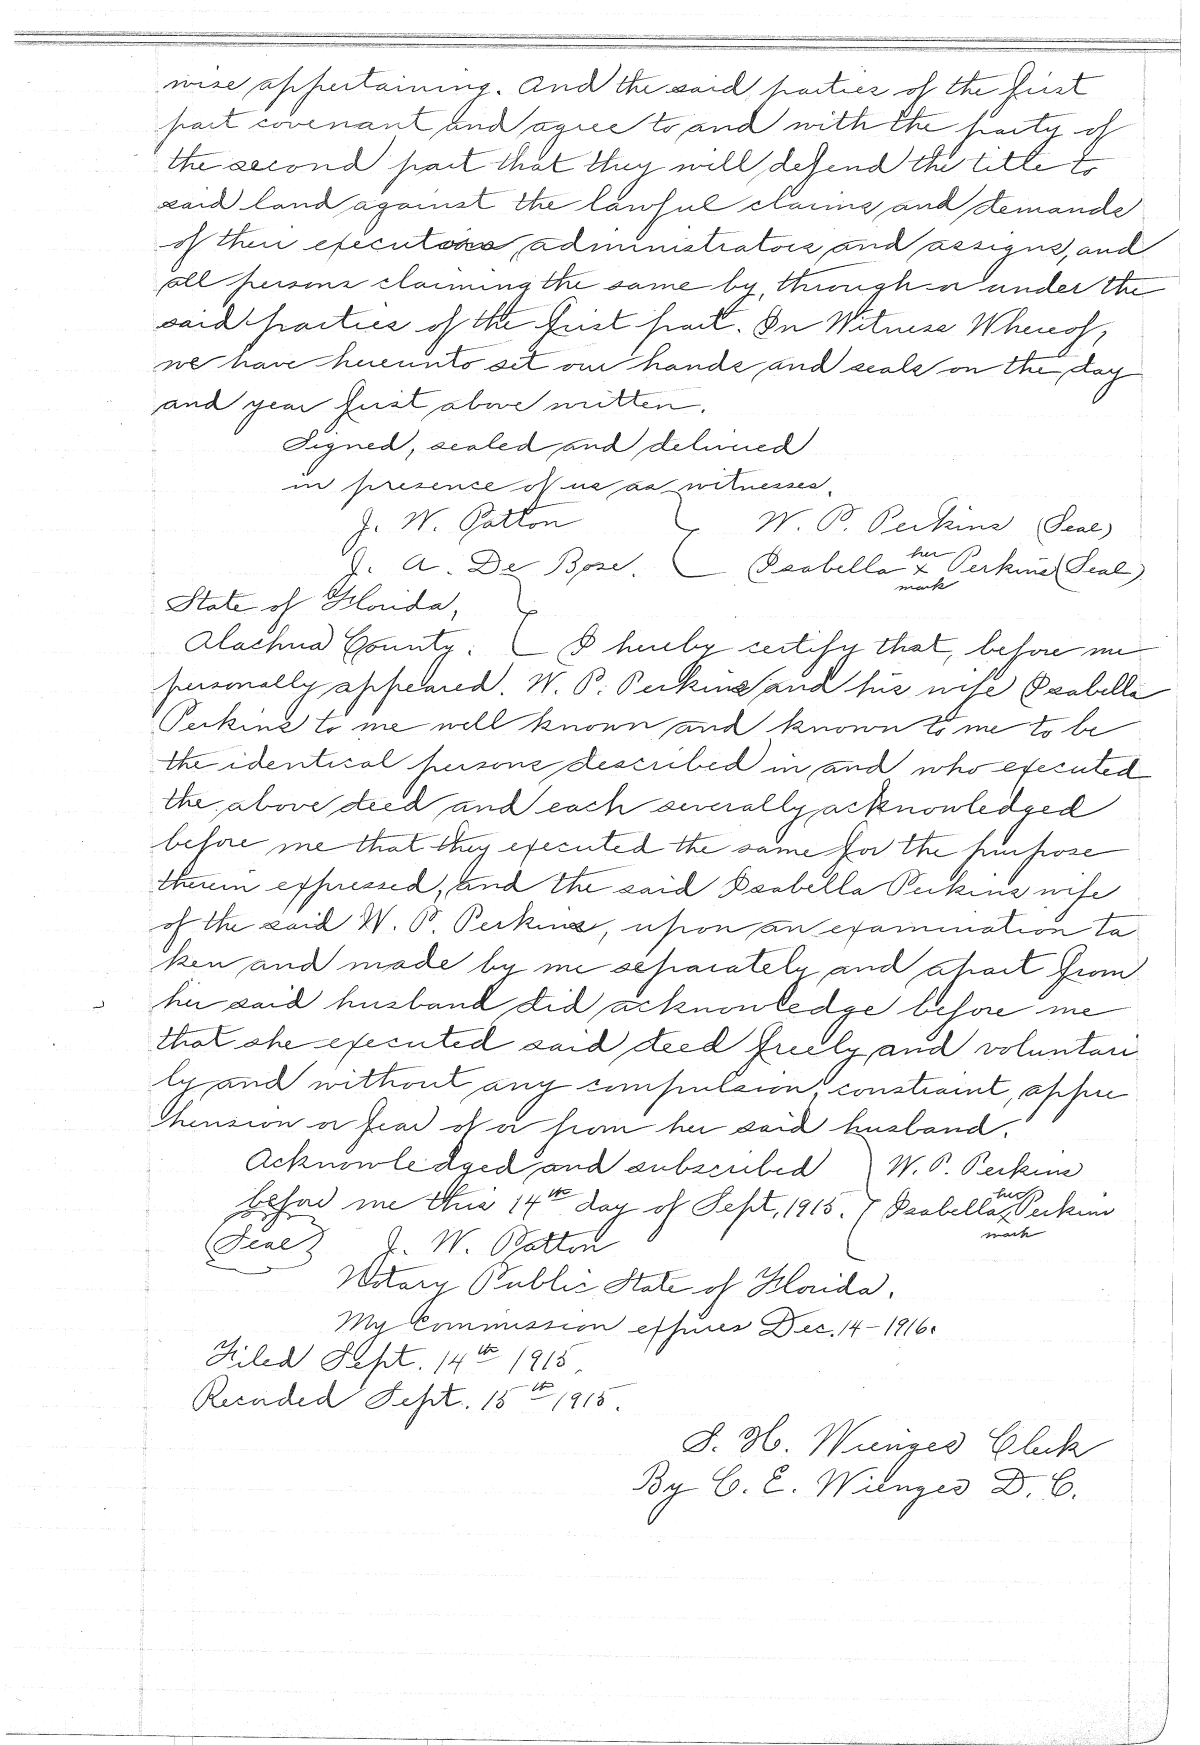 wise appertaining. And the said parties of the first
part covenant and agree to and with the party of
the second part that they will defend the title to
said land against the lawful claims and demands
of their executors, administrators and assigns, and
all persons claiming the same by, through or under the
said parties of the first part. In Witness Whereof,
we have hereunto set our hands and seals on the day
and year first above written.
Signed, sealed and delivered
in presence of us as witnesses.
J. W. Patton W. P. Perkins (Seal)
J. A. De Bose. Isabella her x mark Perkins (Seal)
State of Florida,
Alachua County. I hereby certify that, before me
personally appeared. W. P. Perkins and his wife Isabella
Perkins to me well known and known to me to be
the identical persons described in and who executed
the above deed and each severally acknowledged
before me that they executed the same for the purpose
therein expressed, and the said Isabella Perkins wife
of the said W. P. Perkins, upon an examination ta
ken and made by me separately and apart from
her said husband did acknowledge before me
that she executed said deed freely and voluntari
ly and without any compulsion, constraint, appre
hension or fear of or from her said husband.
Acknowledged and subscribed W. P. Perkins
before me this 14th day of Sept, 1915. Isabella her x mark Perkins
(Seal) J. W. Patton
Notary Public State of Florida.
My Commission expires Dec. 14-1916.
Filed Sept. 14th 1915.
Recorded Sept. 15th 1915.
S. H. Wienges Clerk
By C. E. Wienges D. C.